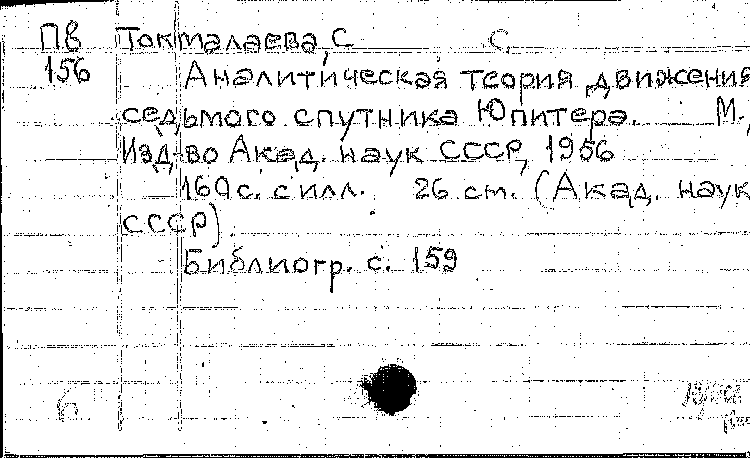 Пв Токмалаева, С. С.
156 Аналитическая теория движения
седьмого спутника Юпитера. М.,
Изд-во Акад. наук СССР, 1956
160 с. с илл. 26 см. (Акад. наук
СССР).
Библиогр. с. 159